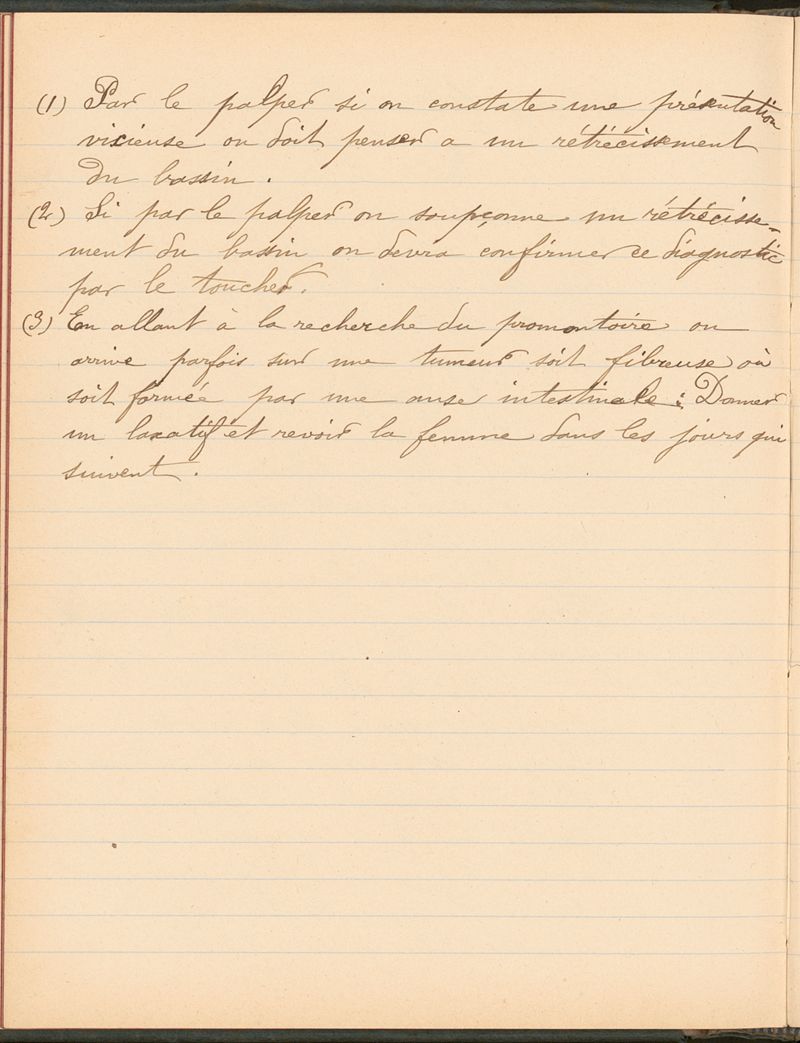 (1) Par le palper si on constate une présentation
vicieuse on doit penser a un rétrécissement
du bassin.
(2) Si par le palper on soupçonne un rétrécisse-
ment du bassin on devra confirmer ce diagnostic
par le toucher.
(3) En allant à la recherche du promontoire on
arrive parfois sur une tumeur soit fibreuse où
soit formée par une anse intestinale : Donner
un laxatif et revoir la femme dans les jours qui
suivent.